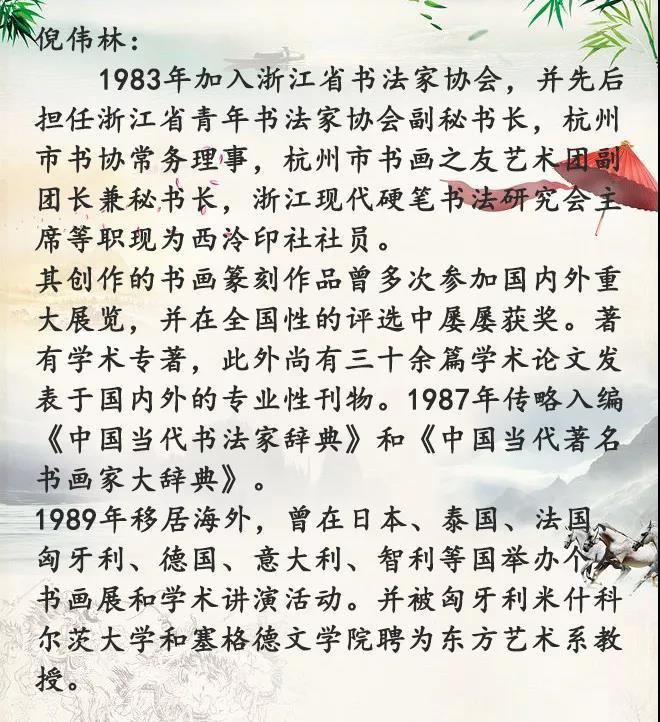 倪伟林：
1983年加入浙江省书法家协会，并先后
担任浙江省青年书法家协会副秘书长，杭州
市书协常务理事，杭州市书画之友艺术团副
团长兼秘书长，浙江现代硬笔书法研究会主
席等职现为西泠印社社员。
其创作的书画篆刻作品曾多次参加国内外重
大展览，并在全国性的评选中屡屡获奖。著
有学术专著，此外尚有三十余篇学术论文发
表于国内外的专业性刊物。1987年传略入编
《中国当代书法家辞典》和《中国当代著名
书画家大辞典》。
1989年移居海外，曾在日本、泰国、法国、
匈牙利、德国、意大利、智利等国举办个人
书画展和学术讲演活动。并被匈牙利米什科
尔茨大学和塞格德文学院聘为东方艺术系教
授。